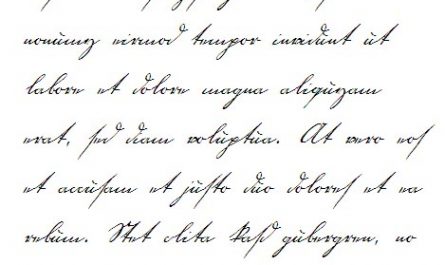 nonumy eirmod tempor invidunt ut
labore et dolore magna aliquyam
erat, sed diam voluptua. At vero eos
et accusam et justo duo dolores et ea
rebum. Stet clita kasd gubergren, no